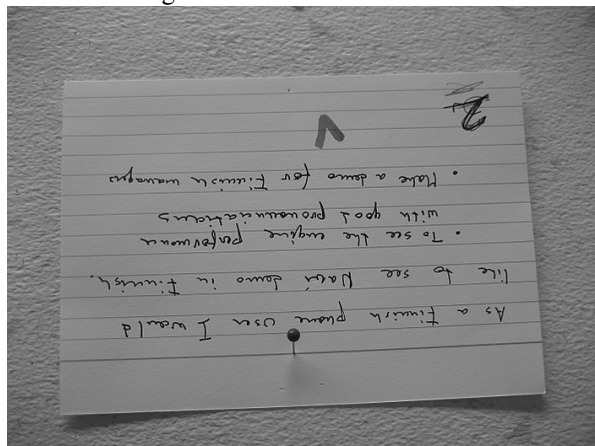 As a Finnish phone user I would
like to see Navi demo in Finnish.
• To see the engine performance
with good pronounciations
• Make a demo for Finnish managers